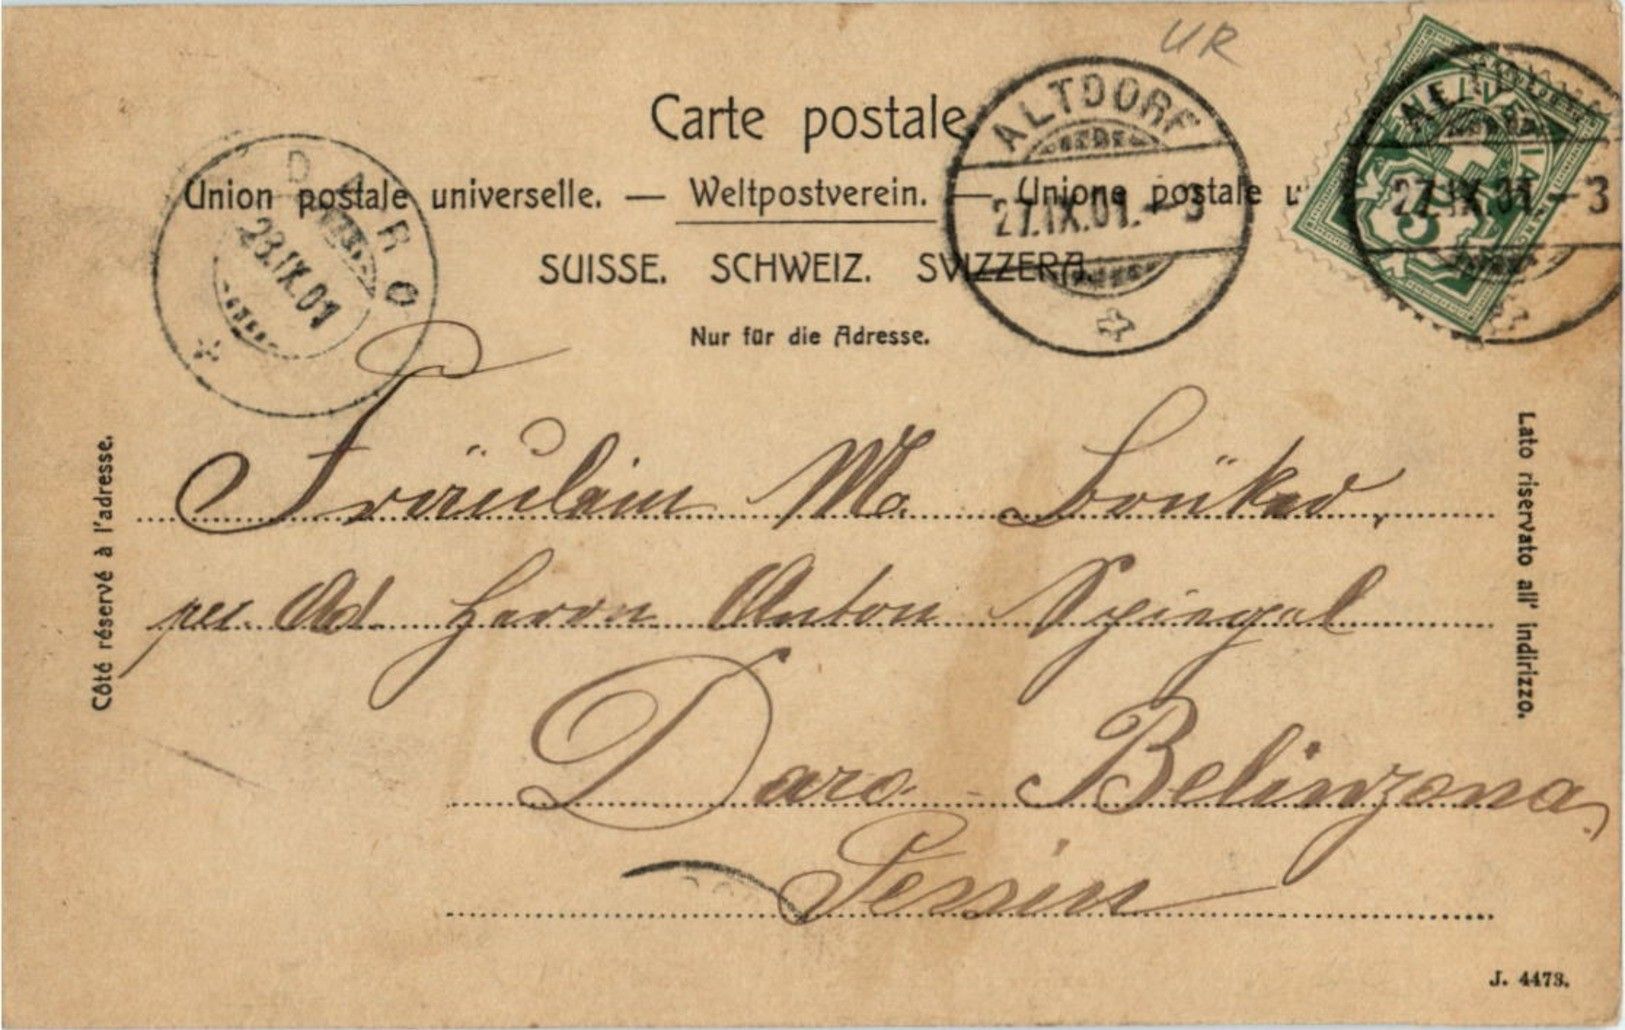 UR
Carte postale
Union postale universelle. — Weltpostverein. — Unione postale u
SUISSE. SCHWEIZ. SVIZZERA.
Nur für die Adresse.
DARO
28.IX.01
ALTDORF
27.IX.01.-3
27.IX.01.-3
5
Côté réservé à l'adresse.
Lato riservato all' indirizzo.
Fräulein M.
per. Ad. Herrn Anton Spiegel
Daro - Belinzona,
Tessin
J. 4473.